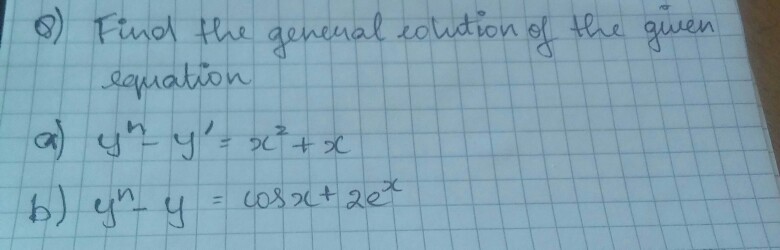 8) Find the general solution of the given
equation
a) y" - y' = x² + x
b) y" - y = cosx + 2eˣ